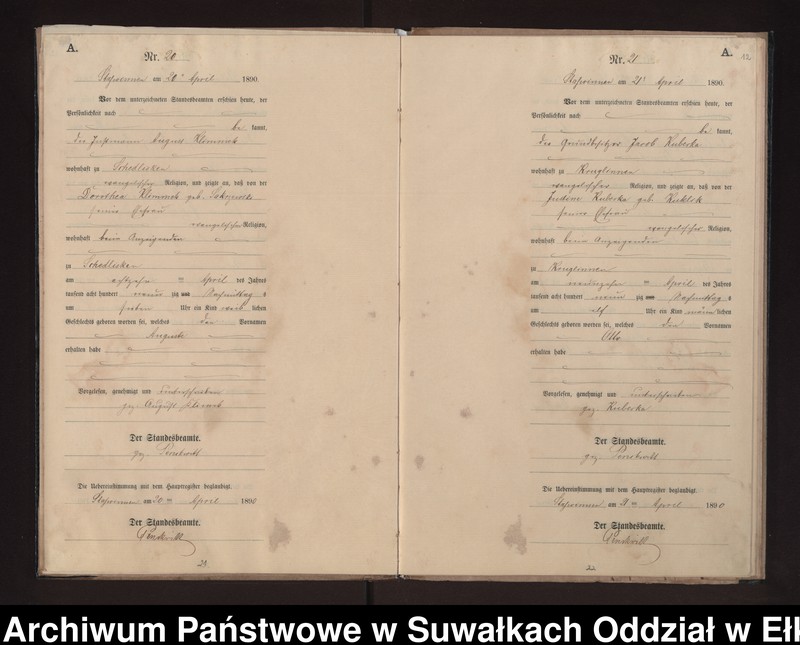 A.
Nr. 20
am 20 April 1890.
Vor dem unterzeichneten Standesbeamten erschien heute, der
Persönlichkeit nach
be kannt,
der August Klemmek
wohnhaft zu Schedlisken
evangelischer Religion, und zeigte an, daß von der
Dorothea Klemmek geb.
seine Ehefrau
evangelischer Religion,
wohnhaft beim Anzeigenden
zu Schedlisken
am achtzehn ten April des Jahres
tausend acht hundert neun zig Nachmittag s
um sieben Uhr ein Kind weib lichen
Geschlechts geboren worden sei, welches den Vornamen
Auguste
erhalten habe
Vorgelesen, genehmigt und unterschrieben
gez. August
Der Standesbeamte.
gez.
Die Uebereinstimmung mit dem Hauptregister beglaubigt.
am 20 ten April 1890
Der Standesbeamte.
A.
Nr. 21
am 21 April 1890.
Vor dem unterzeichneten Standesbeamten erschien heute, der
Persönlichkeit nach
be kannt,
der Grundbesitzer Jacob Kuberka
wohnhaft zu
evangelischer Religion, und zeigte an, daß von der
Kuberka geb. Kuklik
seine Ehefrau
evangelischer Religion,
wohnhaft beim Anzeigenden
zu
am neunzehn ten April des Jahres
tausend acht hundert neun zig Nachmittag s
um elf Uhr ein Kind männ lichen
Geschlechts geboren worden sei, welches den Vornamen
Otto
erhalten habe
Vorgelesen, genehmigt und unterschrieben
gez. Kuberka
Der Standesbeamte.
gez.
Die Uebereinstimmung mit dem Hauptregister beglaubigt.
am 21 ten April 1890
Der Standesbeamte.
Archiwum Państwowe w Suwałkach Oddział w Ełk